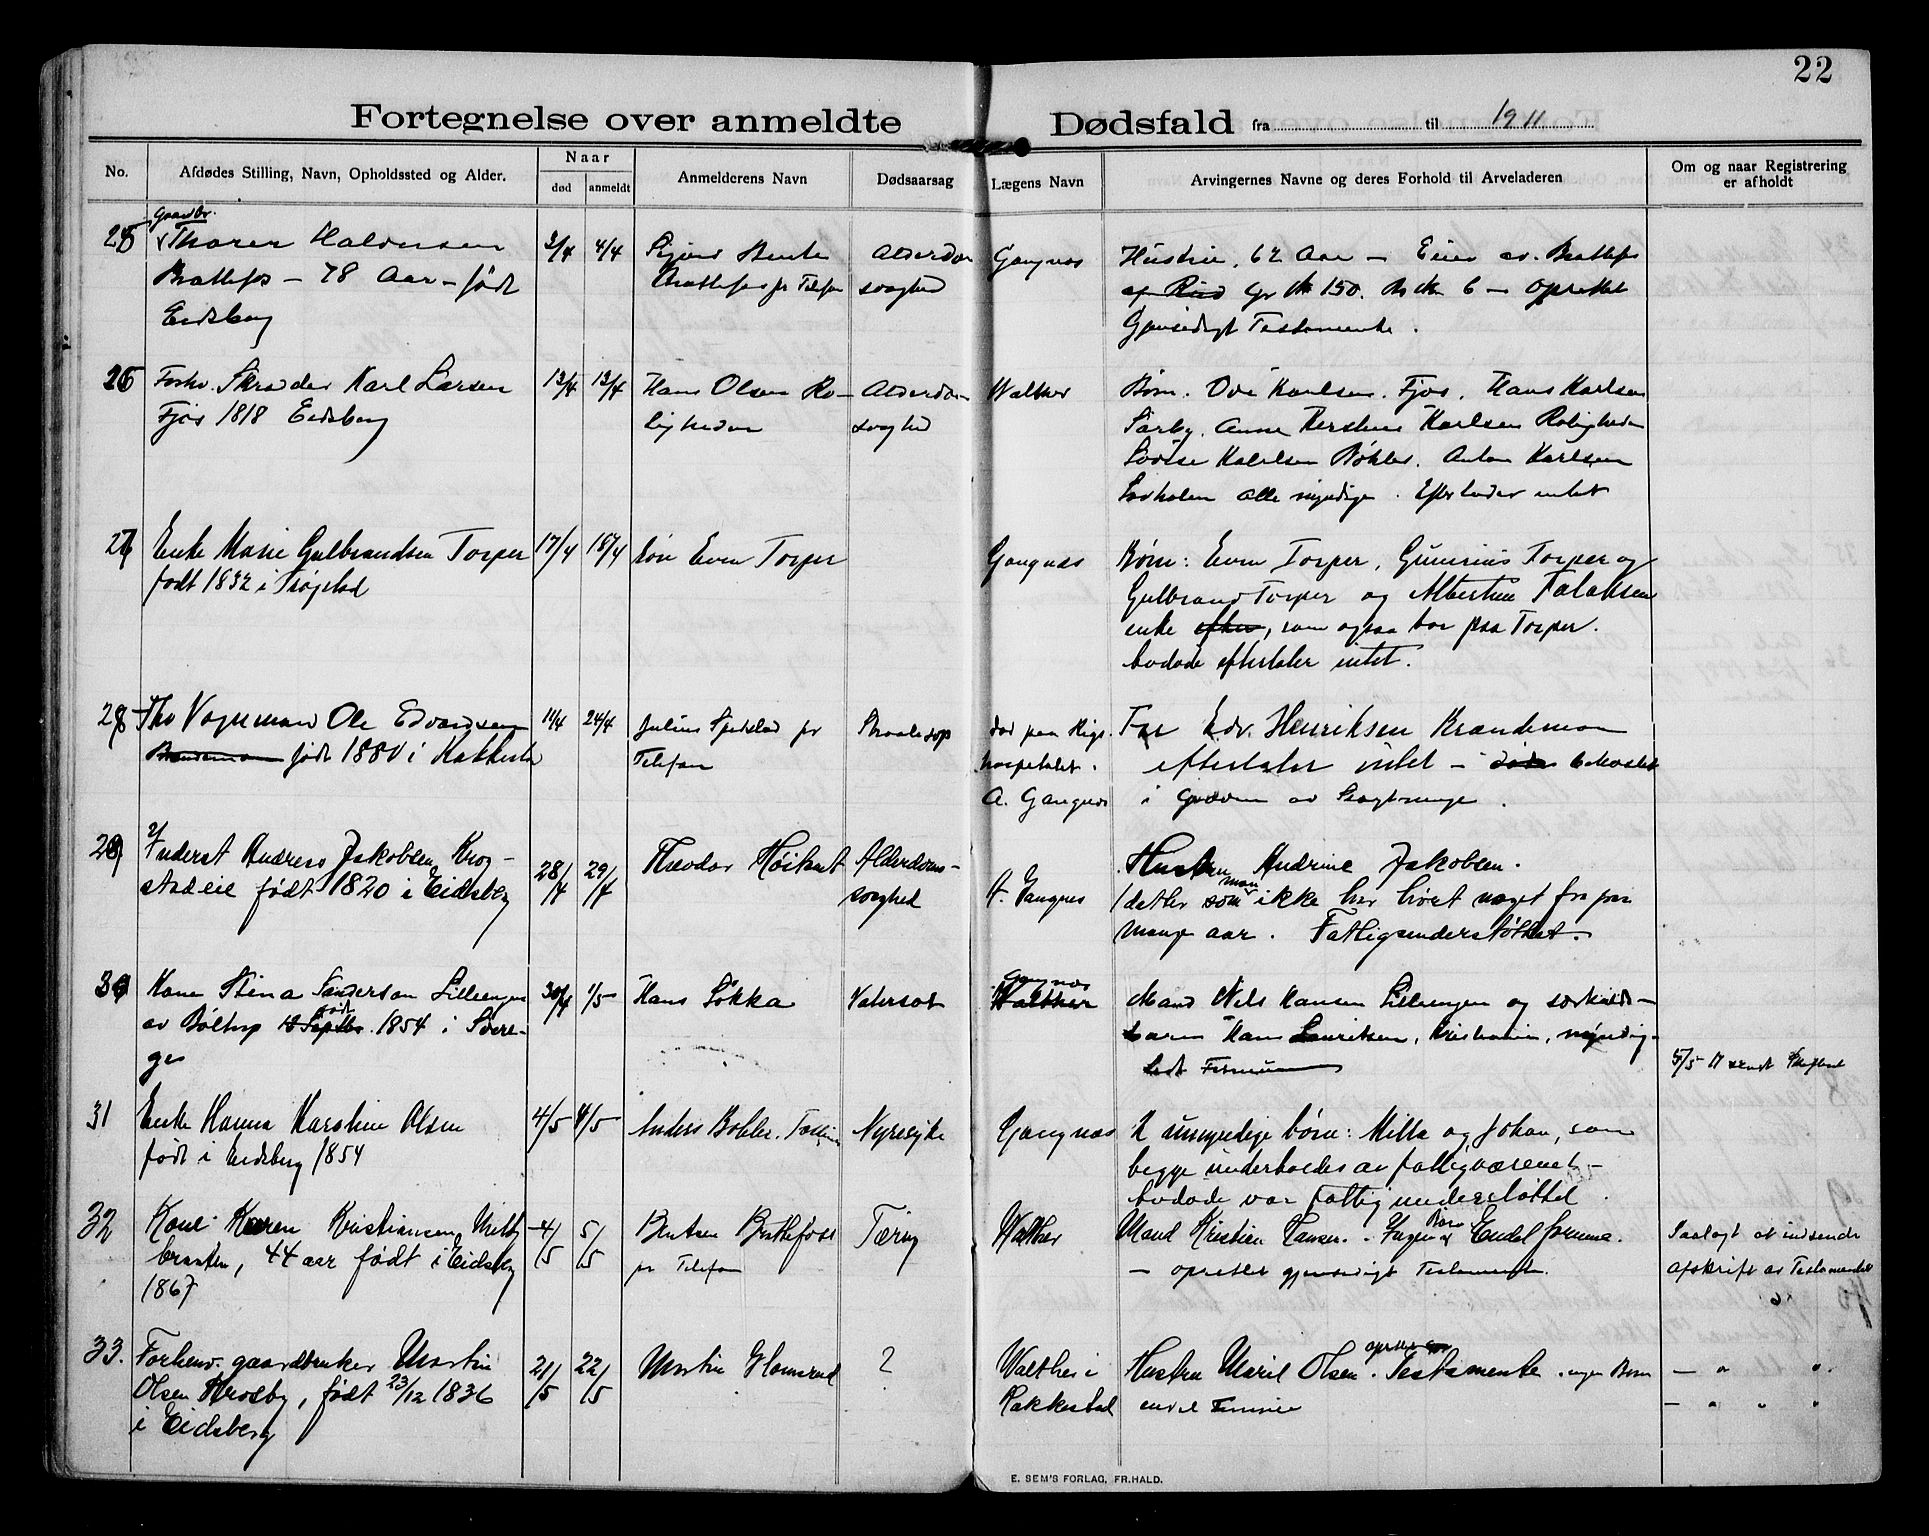 22
Fortegnelse over anmeldte Dødsfald fra til 1911
No.
Afdødes Stilling, Navn, Opholdssted og Alder.
Naar
død
anmeldt
Anmelderens Navn
Dødsaarsag
Lægens Navn
Arvingernes Navne og deres Forhold til Arveladeren
Om og naar Registrering
er afholdt
Gaardbr.
25 Thorer Halvorsen
Brattefos – 78 Aar – født
Eidsberg
3/4 4/4
Bente
Brattefos pr Telefon
Alderdom
svaghed
Gangnæs
Hustru, 62 Aar – Eier av Brattefos
Gr № 150. Br № 6 – oprettet
Gjensidigt Testamente.
26 Forhv. Skrædder Karl Larsen
Fjøs 1818 Eidsberg
13/4 13/4
Hans Olsen Ro-
ligheden
Alderdom-
svaghed
Walther
Børn. Ove Karlsen. Fjøs. Hans Karlsen
Sørby. Anne Kerstine Karlsen Roligheden
Lovise Karlsen Bøhler. Anton Karlsen
alle myndige. Efterlader intet
27 Enke Marie Gulbrandsen Torper
født 1832 i Trøgstad
17/4 18/4
Søn Even Torper
Gangnæs
Børn: Even Torper, Gunerius Torper og
Gulbrand Torper og Albertine Falaksen
enke efter, som ogsaa bor paa Torper.
Avdøde efterlater intet.
28 Fhv Vognmand Ole Edvardsen
Brandemoen født 1880 i Rakkestad
11/4 24/4
Julius Spidslad pr
Telefon
Straalesop
død paa Rigs-
hospitalet.
A. Gangnæs
Far Edv. Henriksen Brandemoen
efterlater intet – bekostet
i Graven av Slagtninge.
29 Inderst Andreas Jakobsen Krog-
stadeie født 1820 i Eidsberg
28/4 29/4
Theodor Høitomt
Alderdoms-
svaghed
A. Gangnes
Hustru Andrine Jakobsen.
datter som man ikke har hørt noget fra paa
Mange aar. Fattigsunderstøttet.
30 Kone Stina Sanderson Lilleengen
av Bøltorp 18 Septbr. født 1854 i Svere-
ge
30/4 1/5
Hans Løkka
Vatersot
Gangnæs
Walther
Mand Nils Hansen Lilleengen og særkulds-
barn Hans Lauritsen, Kristiania, myndig.
Lidt Formue
5/5 11 sendt
31 Enke Hanna Karoline Olsen
født i Eidsberg 1854
4/5 4/5
Anders Bøhler.
Nyresyke
Gangnæs
2 umyndige børn: Milla og Johan, som
begge underholdes av fattigvæsenet –
avdøde var fattigunderstøttet.
32 Kone Karen Kristiansen Mitby
braaten, 44 aar født i Eidsberg
1867
4/5 5/5
Bentsen Brattefoss
pr Telefon
Tæring
Walther
Mand Kristian Hansen. Ingen Børn Endel formue.
– oprettet gjensidigt Testamente.
Paalagt at indsende
afskrift av Testamentet
33. Forhenv. gaardbruker Martin
Olsen Krosby, født 23/12 1836
i Eidsberg
21/5 22/5
Martin Homsrud
?
Walther i
Rakkestad
Hustru Maril Olsen. oprettet Testamente. ingen Børn
endel Formue
– " "
– " " "
E. SEM'S FORLAG, FR.HALD.